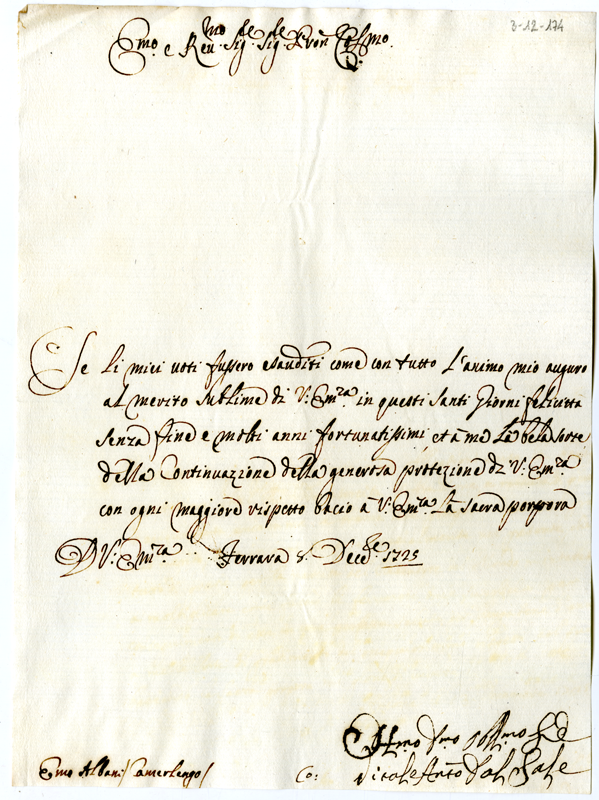 3-12-174
Emo. e Reu.mo Sig.e Sig.e Pron Colmo.
Se li miei uoti fussero esauditi come con tutto l'animo mio auguro
al merito sublime di V: Em.za in questi santi Giorni felicitta
senza fine e molti anni fortunatissimi, et à me la bela sorte
della Continuazione della generosa protezione di V: Em.za
con ogni maggiore rispetto bacio à V: Em.za la sacra porpora
D V: Em.za Ferrara 8. Dece.e 1725
Emo Albani Camerlengo
Co: